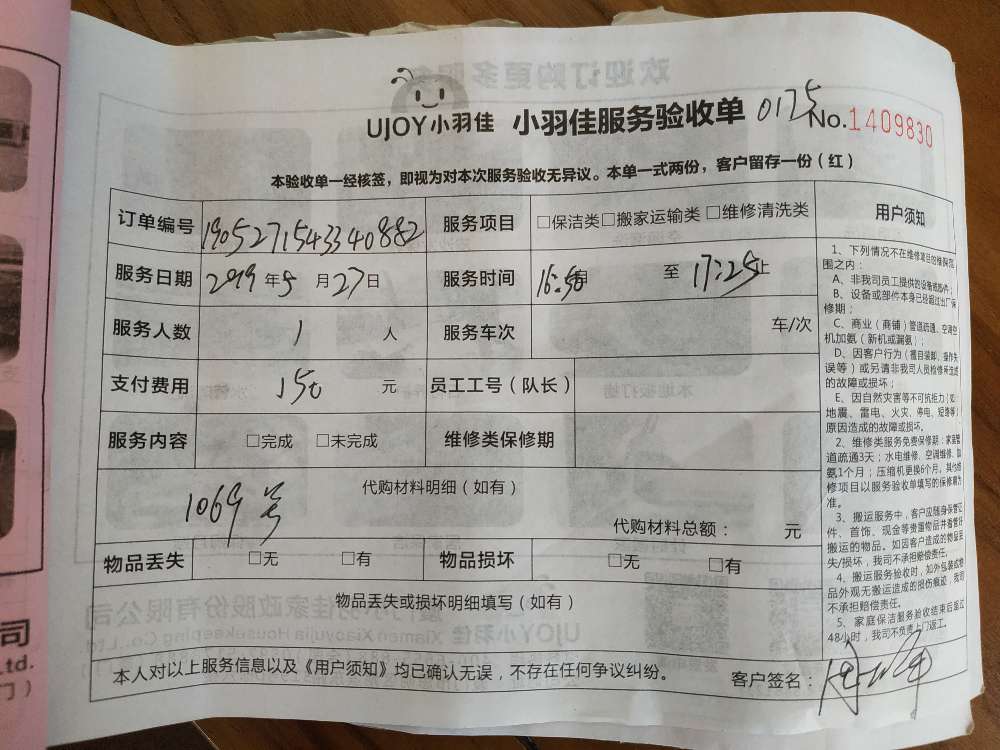 UJOY小羽佳 小羽佳服务验收单 0175 No.1409830
本验收单一经核签，即视为对本次服务验收无异议。本单一式两份，客户留存一份（红）
订单编号 190527154334088​2 服务项目 □保洁类□搬家运输类 □维修清洗类
服务日期 2019 年 5 月 27 日 服务时间 16:50 至 17:25止
服务人数 1 人 服务车次 车/次
支付费用 150 元 员工工号（队长）
服务内容 □完成 □未完成 维修类保修期
代购材料明细（如有）
1069号
代购材料总额： 元
物品丢失 □无 □有 物品损坏 □无 □有
物品丢失或损坏明细填写（如有）
本人对以上服务信息以及《用户须知》均已确认无误，不存在任何争议纠纷。
客户签名：
用户须知
1、下列情况不在维修项目的维购范
围之内：
A、非我司员工提供的设备或部件；
B、设备或部件本身已经超过出厂保
修期；
C、商业（商铺）管道疏通、空调空
机加氨（新机或漏氨）；
D、因客户行为（擅自装卸、操作失
误等）或另请非我司人员检修所造成
的故障或损坏；
E、因自然灾害等不可抗拒力（如
地震、雷电、火灾、停电、短路等）
原因造成的故障或损坏。
2、维修类服务免费保修期：家庭管
道疏通3天；水电维修、空调维修、加
氨1个月；压缩机更换6个月。其他维
修项目以服务验收单填写的保修期为
准。
3、搬运服务中，客户应随身保管证
件、首饰、现金等贵重物品并看管好
搬运的物品。如因客户造成的物品丢
失/损坏，我司不承担赔偿责任。
4、搬运服务验收时，如外包装或物
品外观无搬运造成的损伤痕迹，我司
不承担赔偿责任。
5、家庭保洁服务验收结束后超过
48小时，我司不负责上门返工。
司
Ltd.
门）